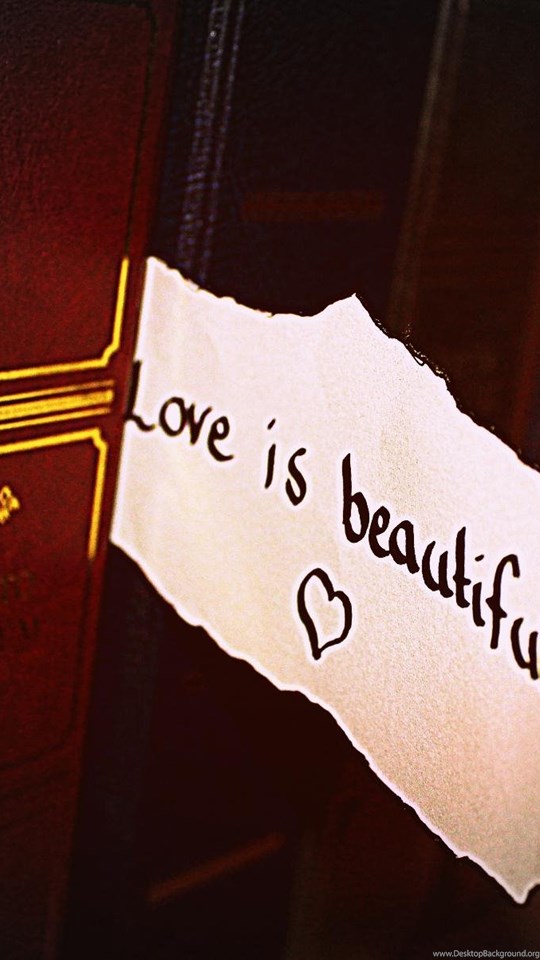 Love is beautifu
www.DesktopBackground.org